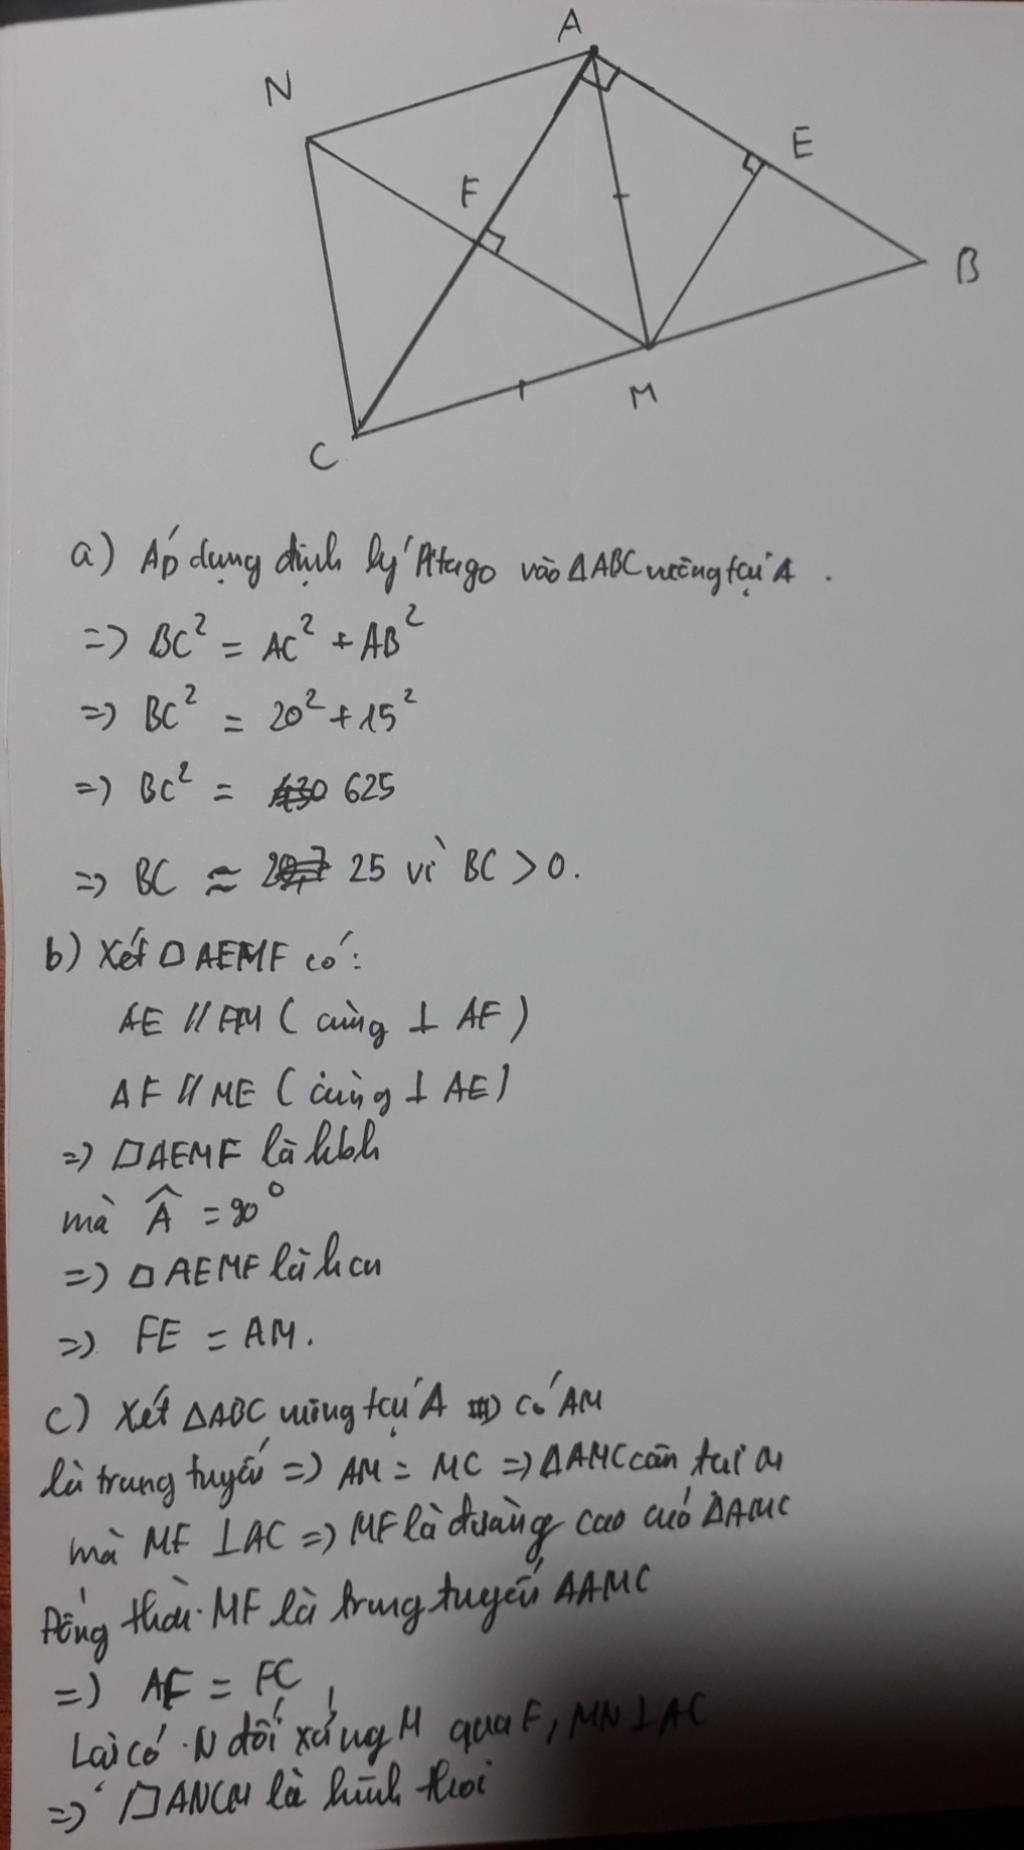 A
N
E
F
B
M
C
a) Áp dụng định lý Pitago vào ΔABC vuông tại A.
=> BC² = AC² + AB²
=> BC² = 20² + 15²
=> BC² = 625
=> BC ≈ 25 vì BC > 0.
b) Xét □AEMF có:
AE // FM ( cùng ⊥ AF )
AF // ME ( cùng ⊥ AE )
=> □AEMF là hbh
mà Â = 90°
=> □AEMF là hcn
=> FE = AM.
c) Xét ΔABC vuông tại A => có AM
là trung tuyến => AM = MC => ΔAMC cân tại M
mà MF ⊥ AC => MF là đường cao của ΔAMC
Đồng thời MF là trung tuyến ΔAMC
=> AF = FC
Lại có N đối xứng M qua F, MN ⊥ AC
=> □ANCM là hình thoi